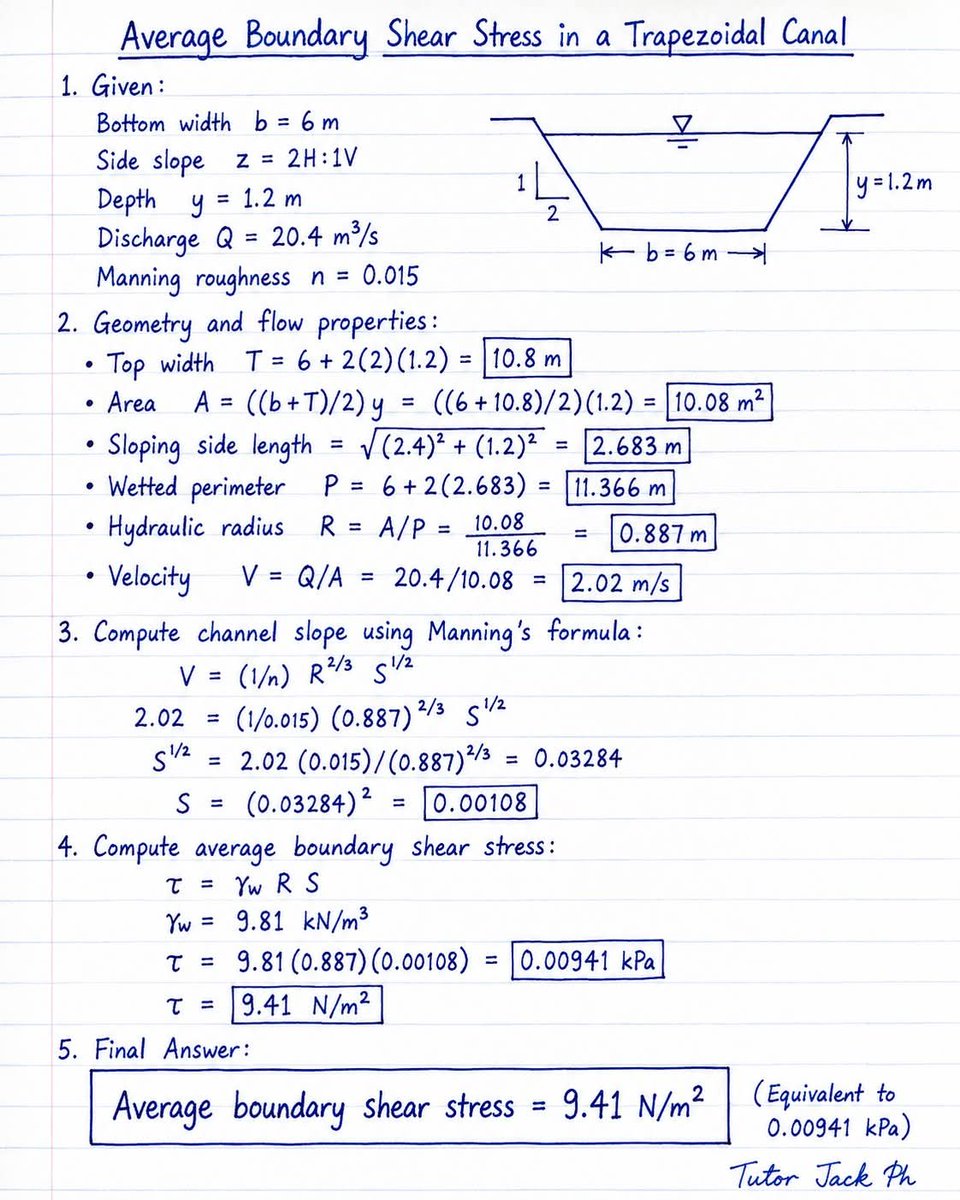 Average Boundary Shear Stress in a Trapezoidal Canal
1. Given:
Bottom width b = 6 m
Side slope z = 2H:1V
Depth y = 1.2 m
Discharge Q = 20.4 m³/s
Manning roughness n = 0.015
1
2
b = 6 m
y = 1.2 m
2. Geometry and flow properties:
• Top width T = 6 + 2(2)(1.2) = 10.8 m
• Area A = ((b+T)/2) y = ((6+10.8)/2)(1.2) = 10.08 m²
• Sloping side length = √(2.4)² + (1.2)² = 2.683 m
• Wetted perimeter P = 6 + 2(2.683) = 11.366 m
• Hydraulic radius R = A/P = 10.08/11.366 = 0.887 m
• Velocity V = Q/A = 20.4/10.08 = 2.02 m/s
3. Compute channel slope using Manning's formula:
V = (1/n) R^2/3 S^1/2
2.02 = (1/0.015) (0.887)^2/3 S^1/2
S^1/2 = 2.02 (0.015)/(0.887)^2/3 = 0.03284
S = (0.03284)² = 0.00108
4. Compute average boundary shear stress:
τ = γw R S
γw = 9.81 kN/m³
τ = 9.81 (0.887)(0.00108) = 0.00941 kPa
τ = 9.41 N/m²
5. Final Answer:
Average boundary shear stress = 9.41 N/m²
(Equivalent to
0.00941 kPa)
Tutor Jack Ph